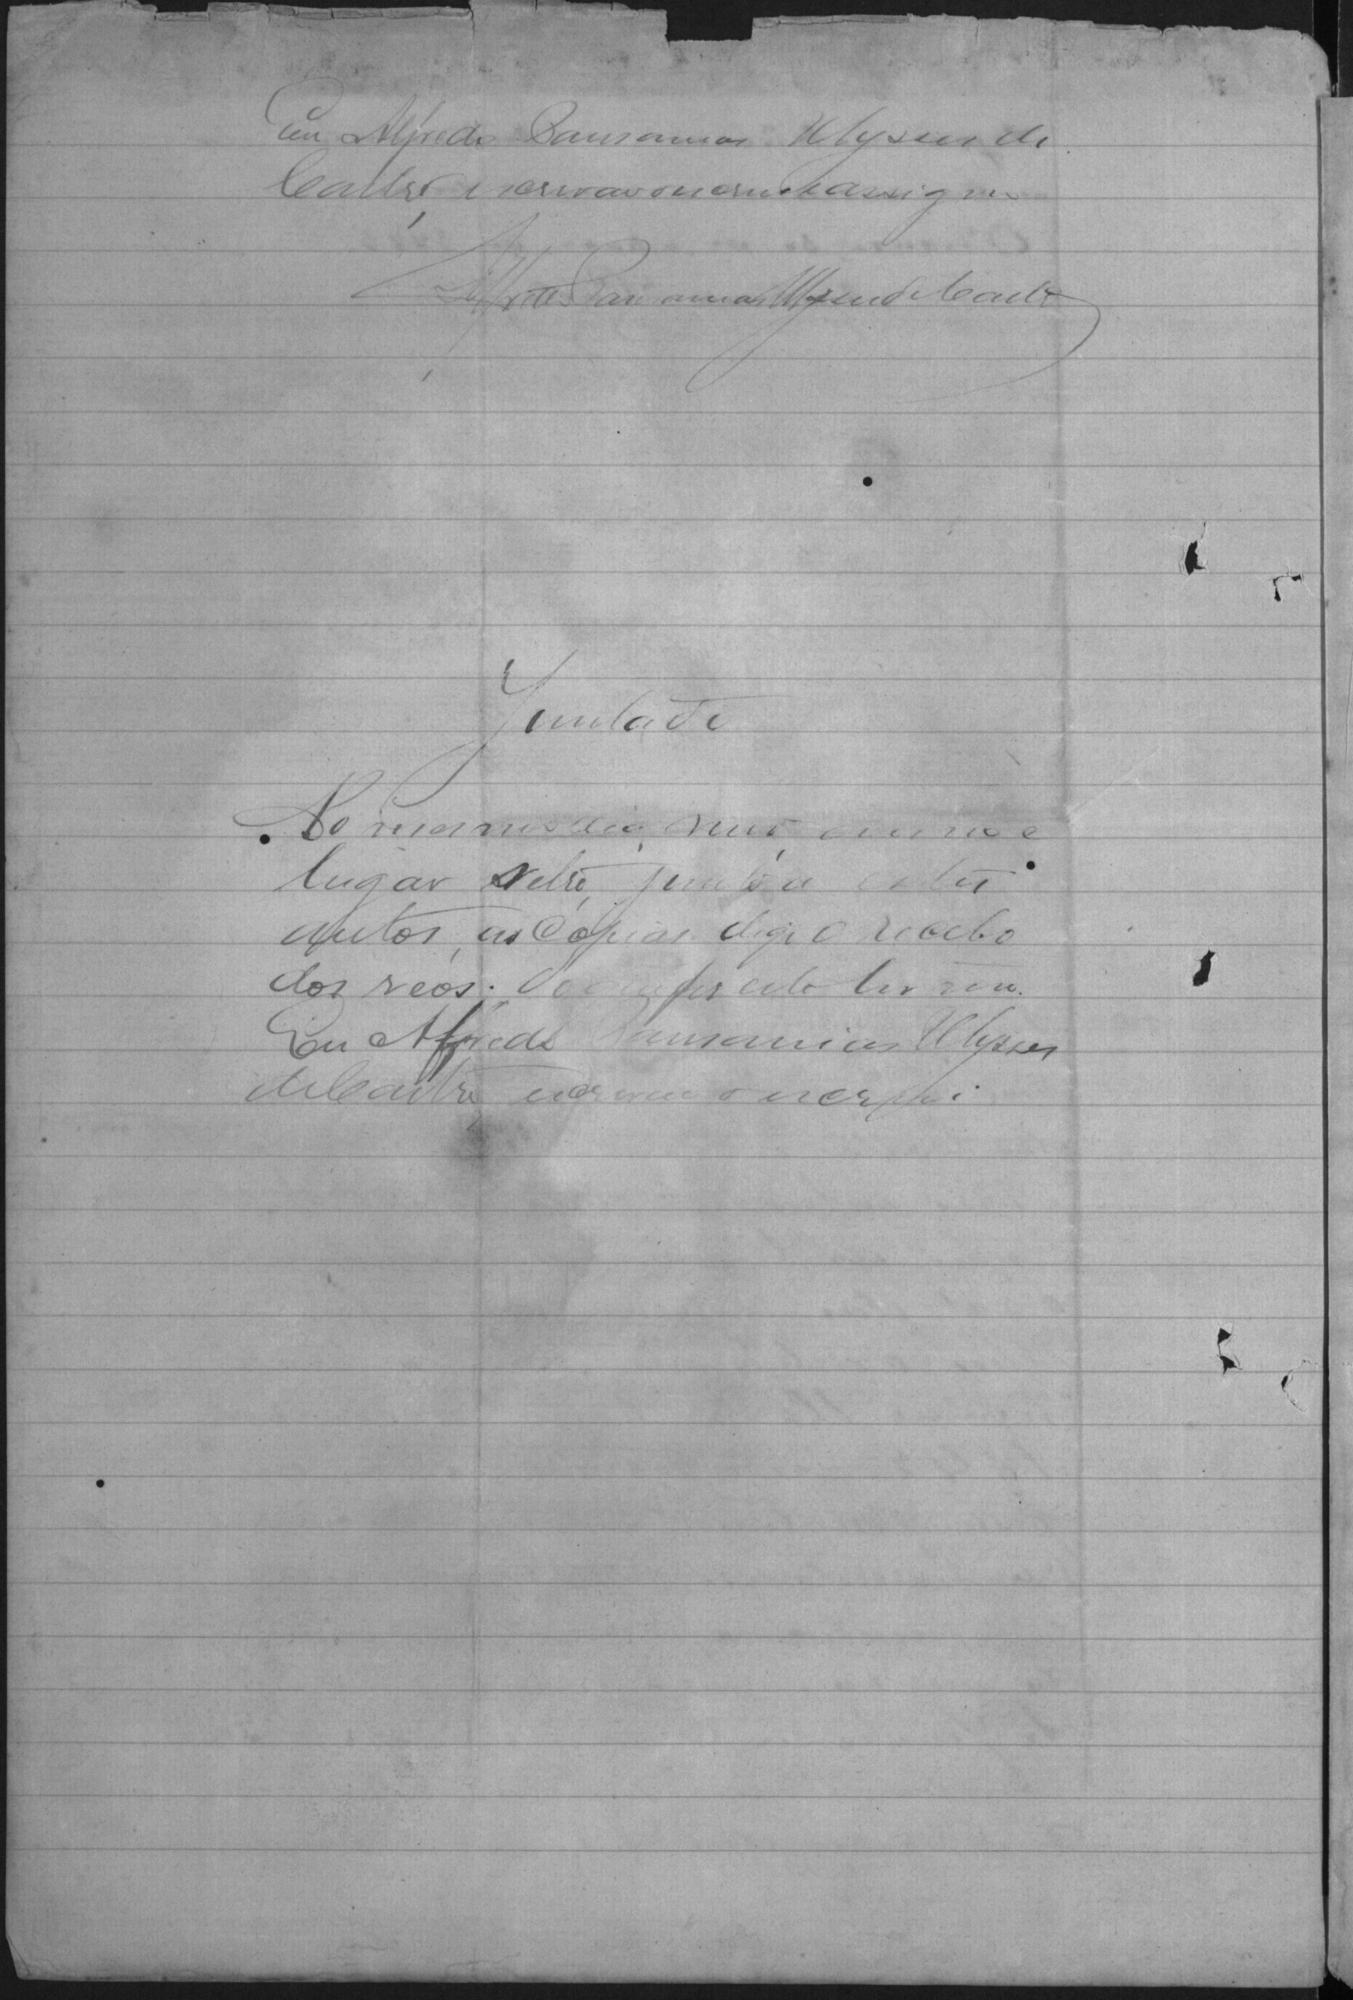 Eu Alfredo Pausanias Ulysses de
Castro escrivão o escrevi e assigno
Alfredo Pausanias Ulysses de Castro
Juntada
No mesmo dia, mez, anno e
lugar retro, junto a estes
autos, as Cópias digo o recebo
dos reós. Do que faço este termo.
Eu Alfredo Pausanias Ulysses
de Castro, escrivão o escrevi.